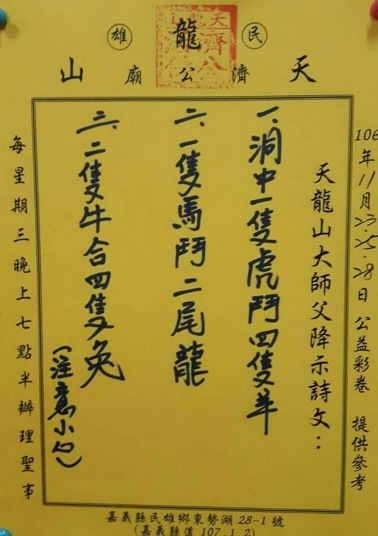 民 龍 雄
天 濟 公 廟 山
106年11月23.25.28日 公益彩卷 提供參考
天龍山大師父降示詩文：
一、洞中一隻虎鬥四隻羊
二、一隻馬鬥二尾龍
三、二隻牛合四隻兔
(注意小)
每星期三晚上七點半辦理聖事
嘉義縣民雄鄉東勢湖28-1號
(嘉義縣道107.1.2)